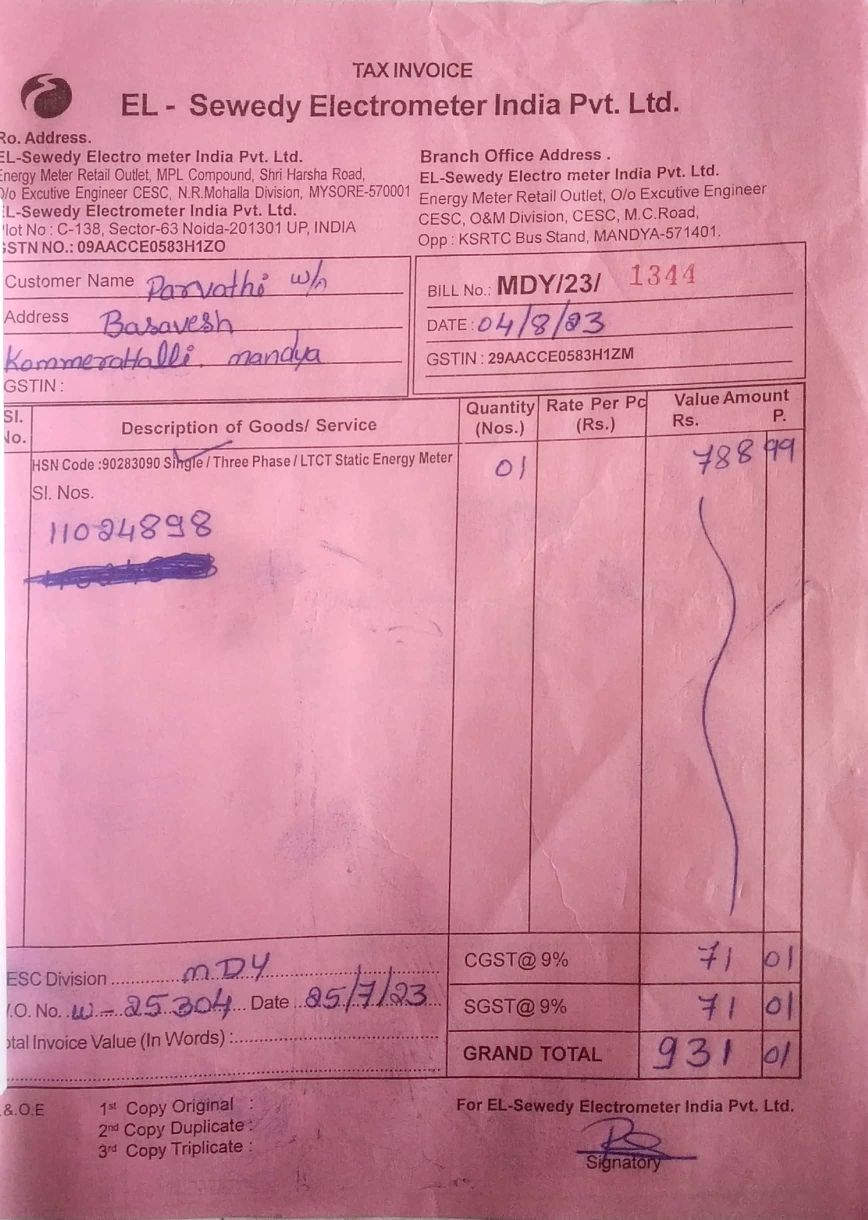 TAX INVOICE
EL - Sewedy Electrometer India Pvt. Ltd.
Ro. Address.
EL-Sewedy Electro meter India Pvt. Ltd.
Energy Meter Retail Outlet, MPL Compound, Shri Harsha Road,
O/o Excutive Engineer CESC, N.R.Mohalla Division, MYSORE-570001
EL-Sewedy Electrometer India Pvt. Ltd.
Plot No : C-138, Sector-63 Noida-201301 UP, INDIA
GSTN NO.: 09AACCE0583H1ZO
Branch Office Address .
EL-Sewedy Electro meter India Pvt. Ltd.
Energy Meter Retail Outlet, O/o Excutive Engineer
CESC, O&M Division, CESC, M.C.Road,
Opp : KSRTC Bus Stand, MANDYA-571401.
Customer Name Parvathi w/o
Address Basavesh
Kommerahalli. mandya
GSTIN :
BILL No.: MDY/23/ 1344
DATE : 04/8/23
GSTIN : 29AACCE0583H1ZM
Sl. No. Description of Goods/ Service Quantity (Nos.) Rate Per Pc (Rs.) Value Amount Rs. P.
HSN Code :90283090 Single / Three Phase / LTCT Static Energy Meter 01 788 99
Sl. Nos.
11024898
CESC Division MDY
W.O. No. W-25304 Date 25/7/23
Total Invoice Value (In Words) :
CGST@ 9% 71 01
SGST@ 9% 71 01
GRAND TOTAL 931 01
E.&.O.E
1st Copy Original :
2nd Copy Duplicate :
3rd Copy Triplicate :
For EL-Sewedy Electrometer India Pvt. Ltd.
Signatory